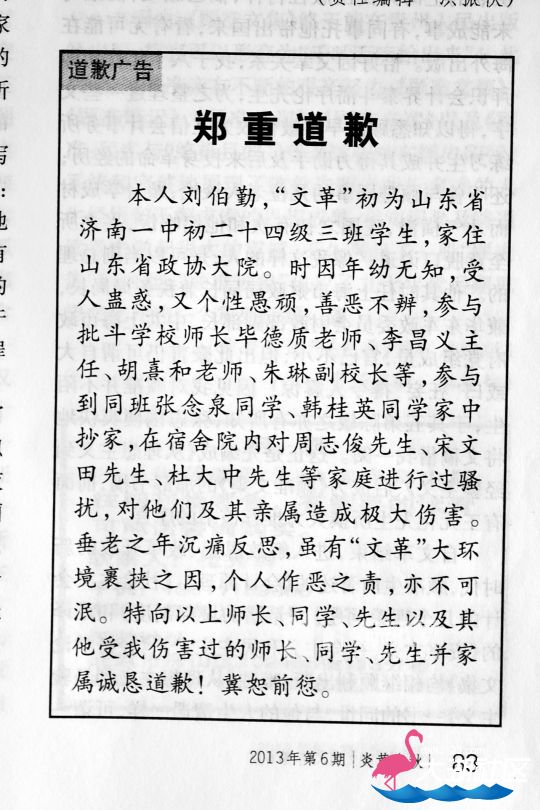 道歉广告
郑重道歉
本人刘伯勤，“文革”初为山东省
济南一中初二十四级三班学生，家住
山东省政协大院。时因年幼无知，受
人蛊惑，又个性愚顽，善恶不辨，参与
批斗学校师长毕德质老师、李昌义主
任、胡熹和老师、朱琳副校长等，参与
到同班张念泉同学、韩桂英同学家中
抄家，在宿舍院内对周志俊先生、宋文
田先生、杜大中先生等家庭进行过骚
扰，对他们及其亲属造成极大伤害。
垂老之年沉痛反思，虽有“文革”大环
境裹挟之因，个人作恶之责，亦不可
泯。特向以上师长、同学、先生以及其
他受我伤害过的师长、同学、先生并家
属诚恳道歉！冀恕前愆。
2013年第6期 炎黄 83